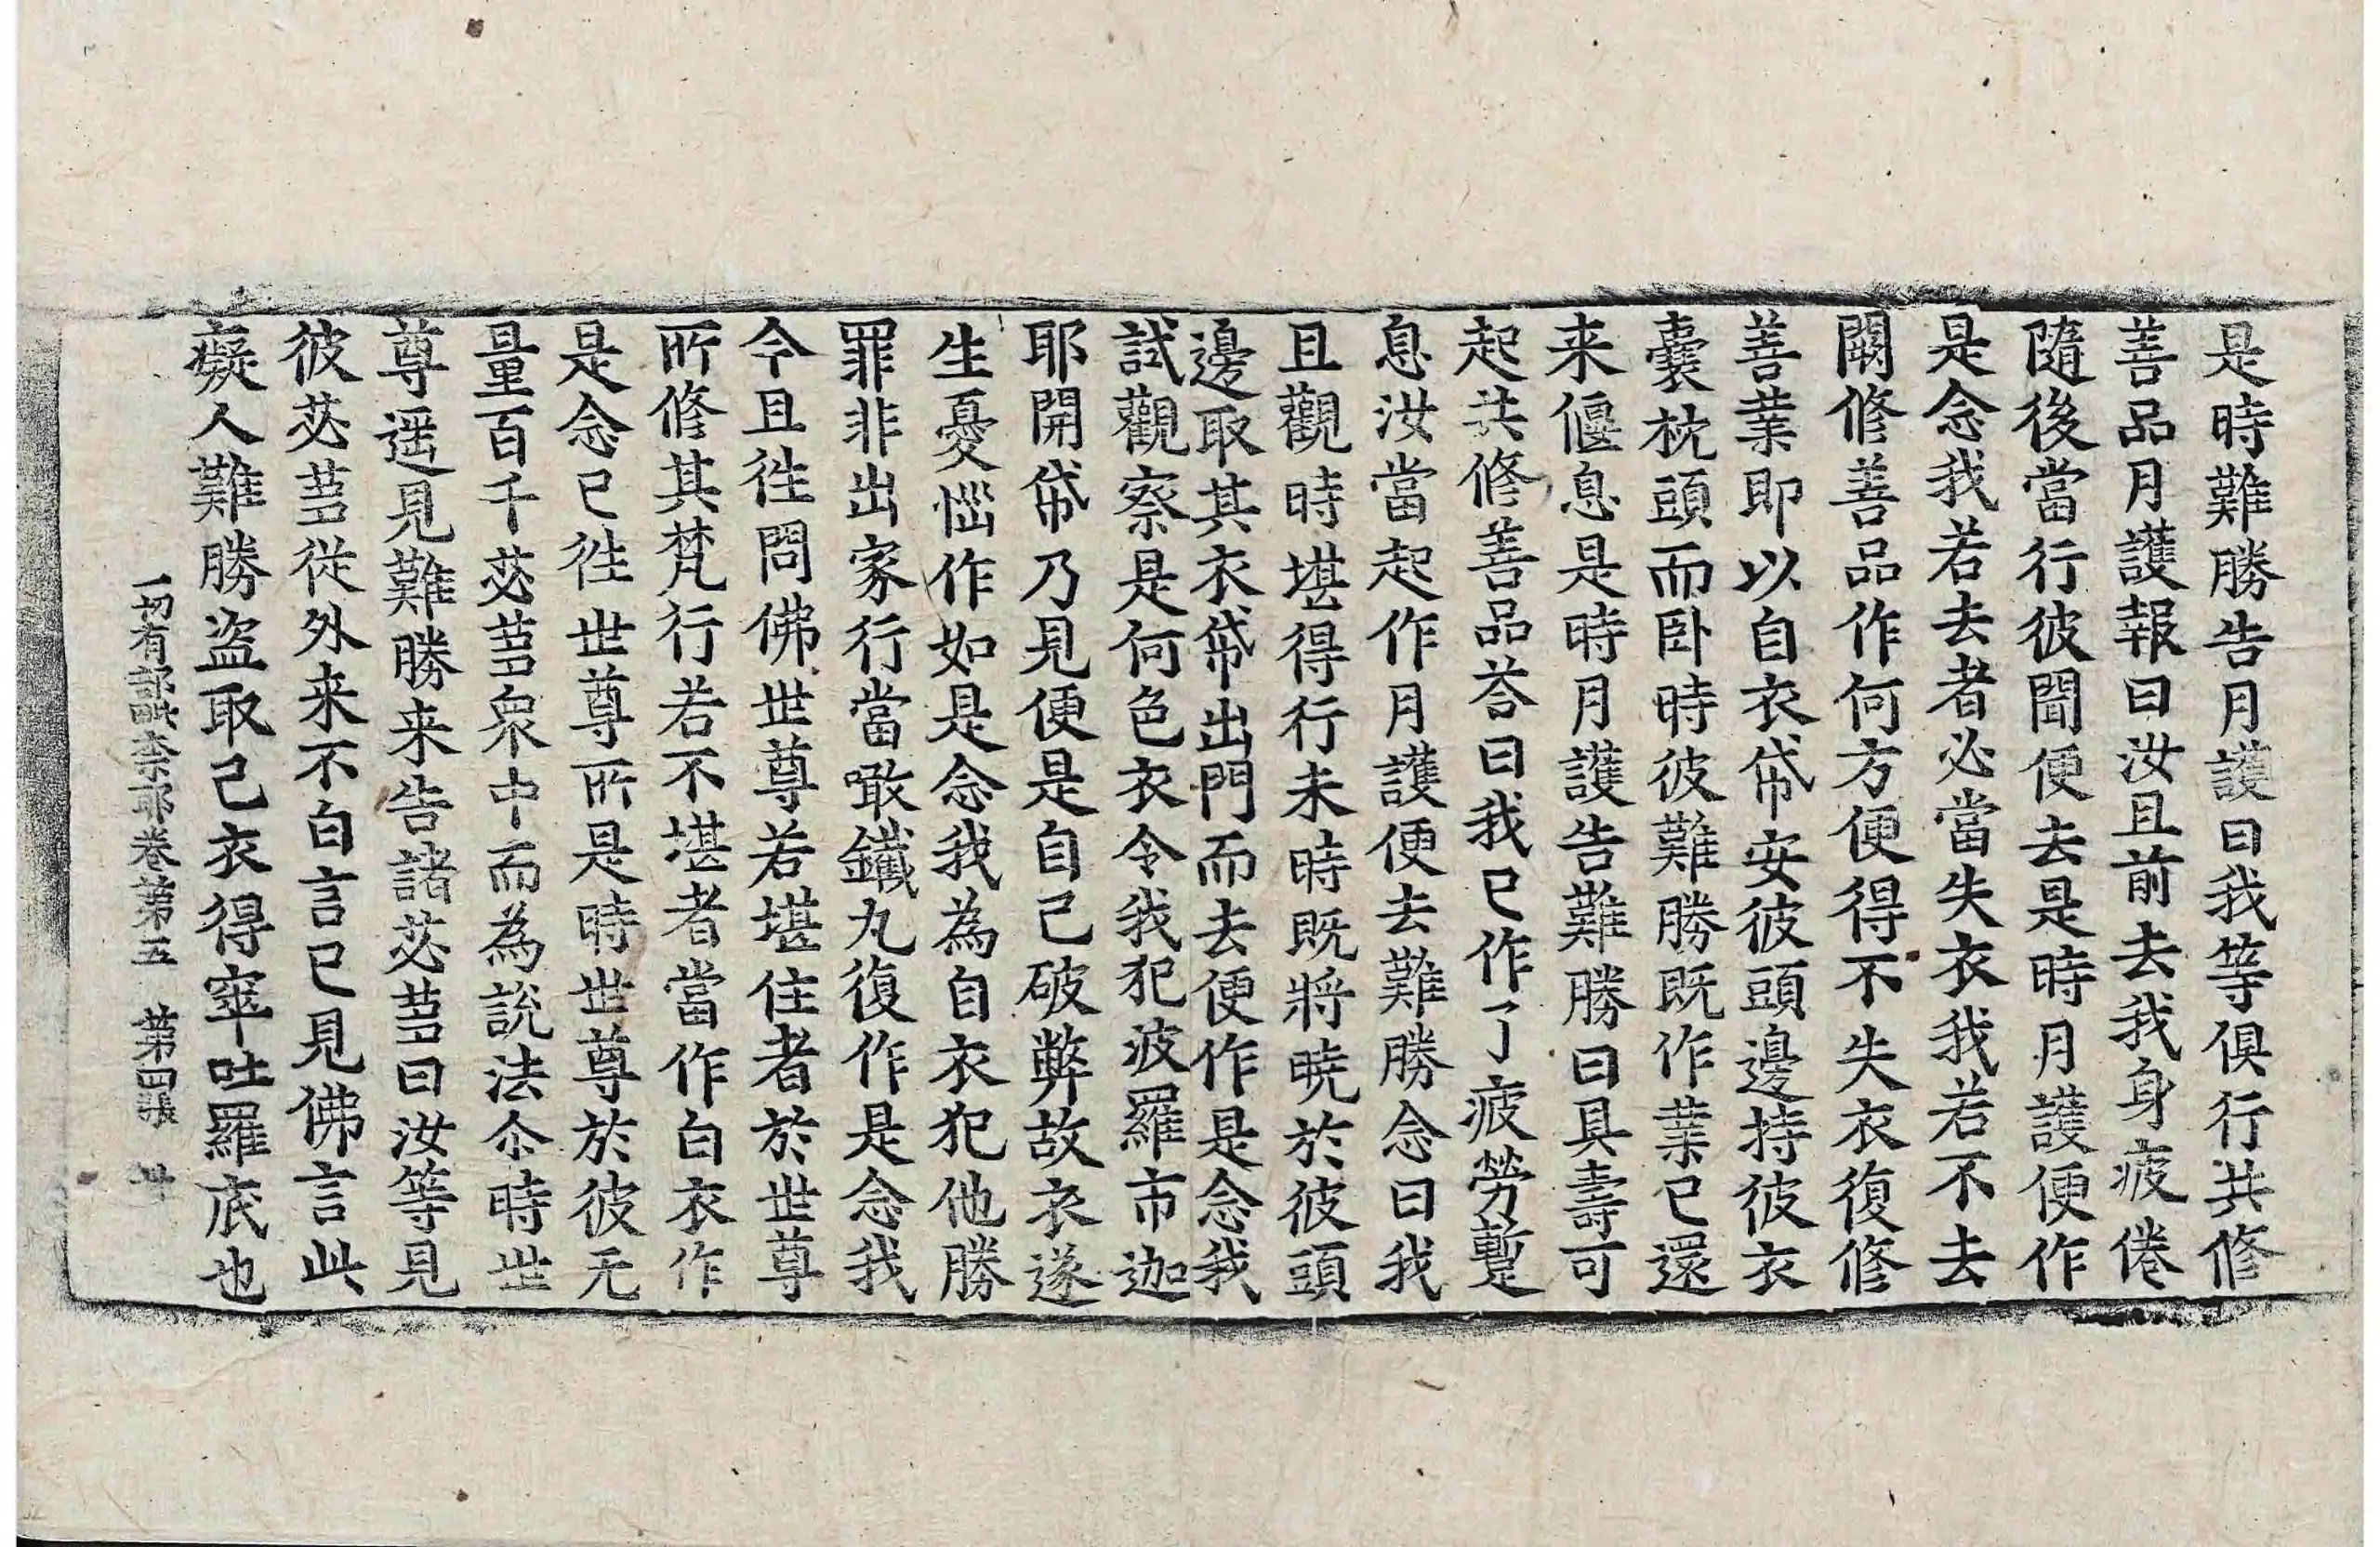 是時難勝告月護曰我等俱行共修
善品月護報曰汝且前去我身疲倦
隨後當行彼聞便去是時月護便作
是念我若去者必當失衣我若不去
闕修善品作何方便得不失衣復修
善業即以自衣帒安彼頭邊持彼衣
囊枕頭而卧時彼難勝既作業已還
来偃息是時月護告難勝曰具壽可
起共修善品荅曰我已作了疲勞蹔
息汝當起作月護便去難勝念曰我
且觀時堪得行未時既將曉於彼頭
邊取其衣帒出門而去便作是念我
試觀察是何色衣令我犯波羅市迦
耶開帒乃見便是自己破弊故衣遂
生憂惱作如是念我為自衣犯他勝
罪非出家行當噉鐵丸復作是念我
今且徃問佛世尊若堪住者於世尊
所修其梵行若不堪者當作白衣作
是念已徃世尊所是時世尊於彼无
量百千苾蒭衆中而為說法尒時世
尊遥見難勝来告諸苾蒭曰汝等見
彼苾蒭從外来不白言已見佛言此
癡人難勝盜取己衣得窣吐羅底也
一切有部毗奈耶卷第五　第四張